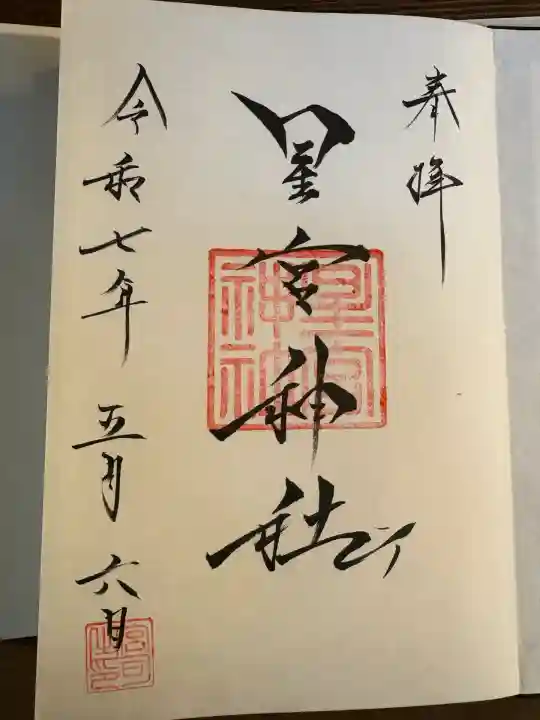 奉拝
星宮神社
令和七年五月六日
星宮神社
宮司之印